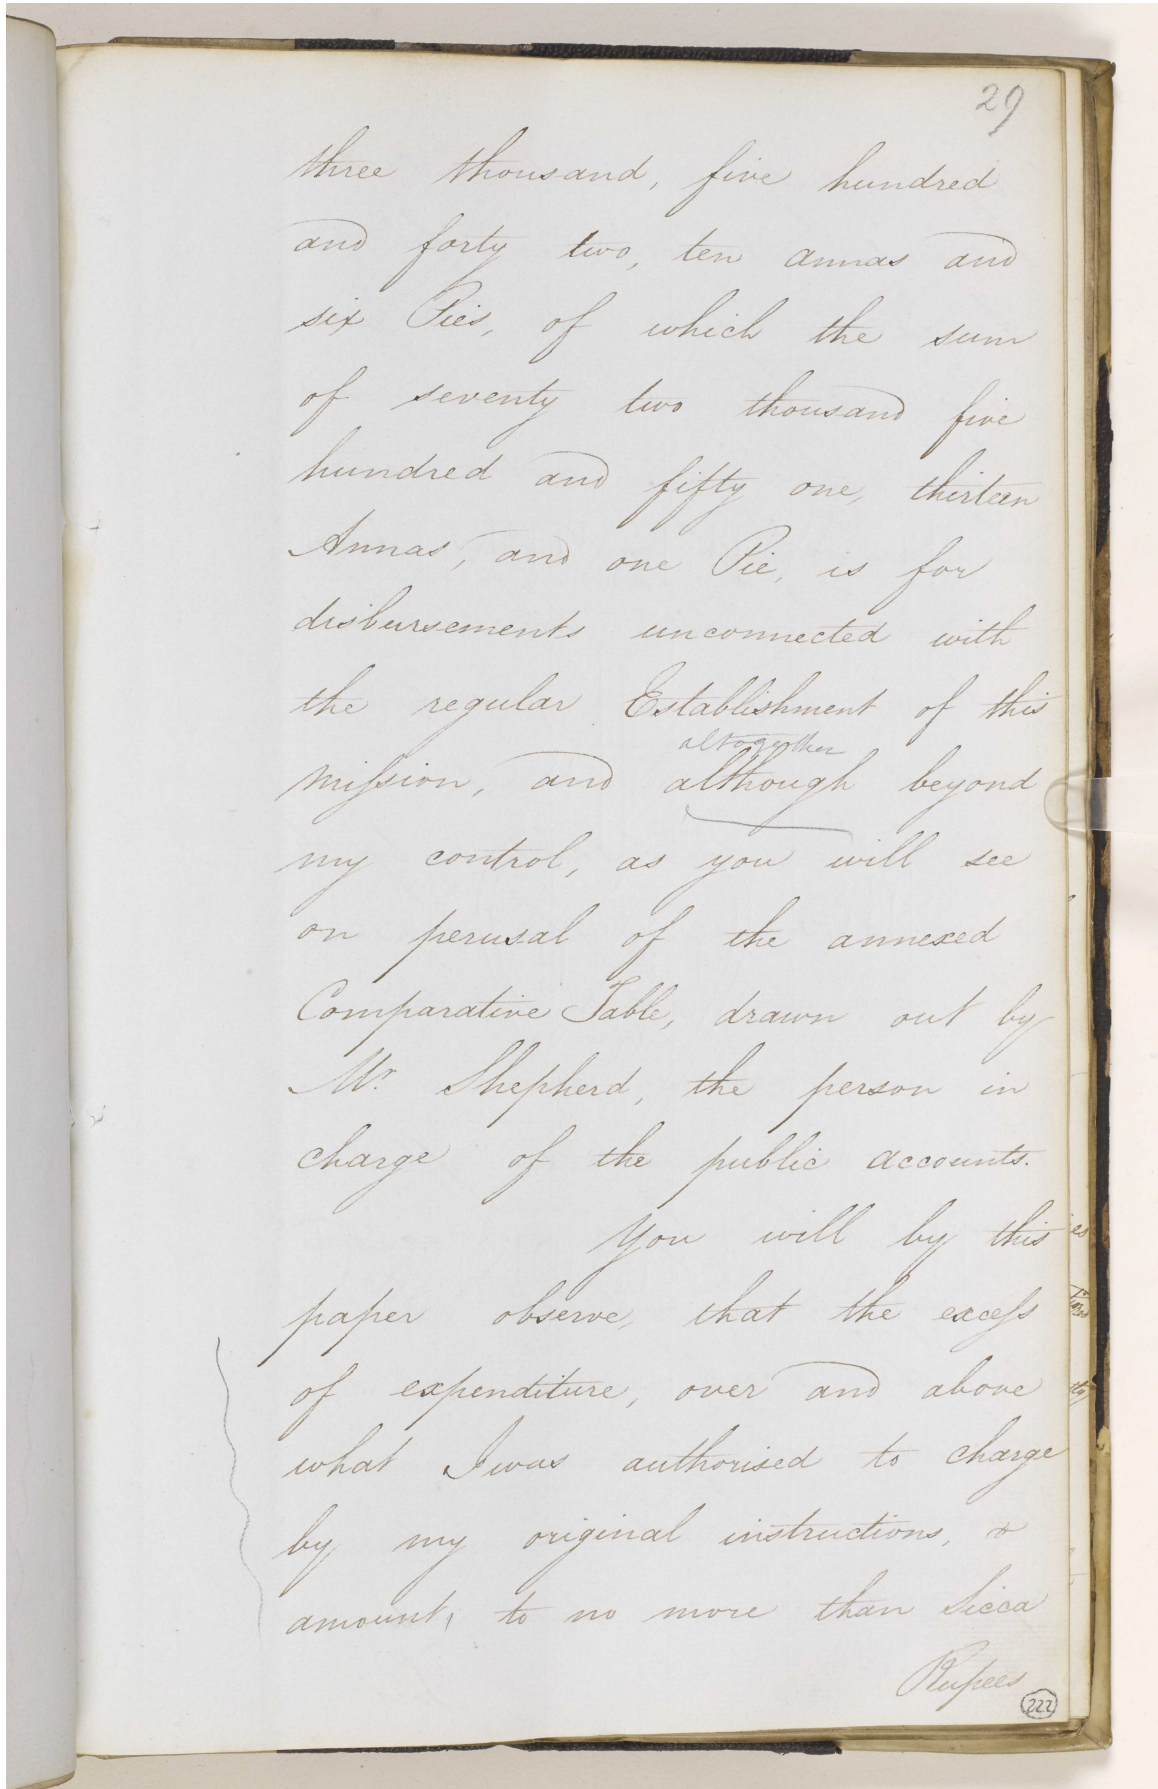 29
three thousand, five hundred
and forty two, ten annas and
six Pies, of which the sum
of seventy two thousand five
hundred and fifty one, thirteen
Annas, and one Pie, is for
disbursements unconnected with
the regular Establishment of this
altogether
mission, and although beyond
my control, as you will see
on perusal of the annexed
Comparative Table, drawn out by
Mr. Shepherd, the person in
charge of the public accounts.
You will by this
paper observe, that the excess
of expenditure, over and above
what I was authorised to charge
by my original instructions,
amount, to no more than Sicca
Rupees
222